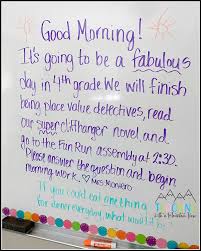 Good Morning!
It's going to be a fabulous
day in 4th grade. We will finish
being place value detectives, read
our super cliffhanger novel, and
go to the Fun Run assembly at 2:30.
Please answer the question and begin
morning work. ♡ Mrs Montero
If you could eat one thing
for dinner everyday, what would it be